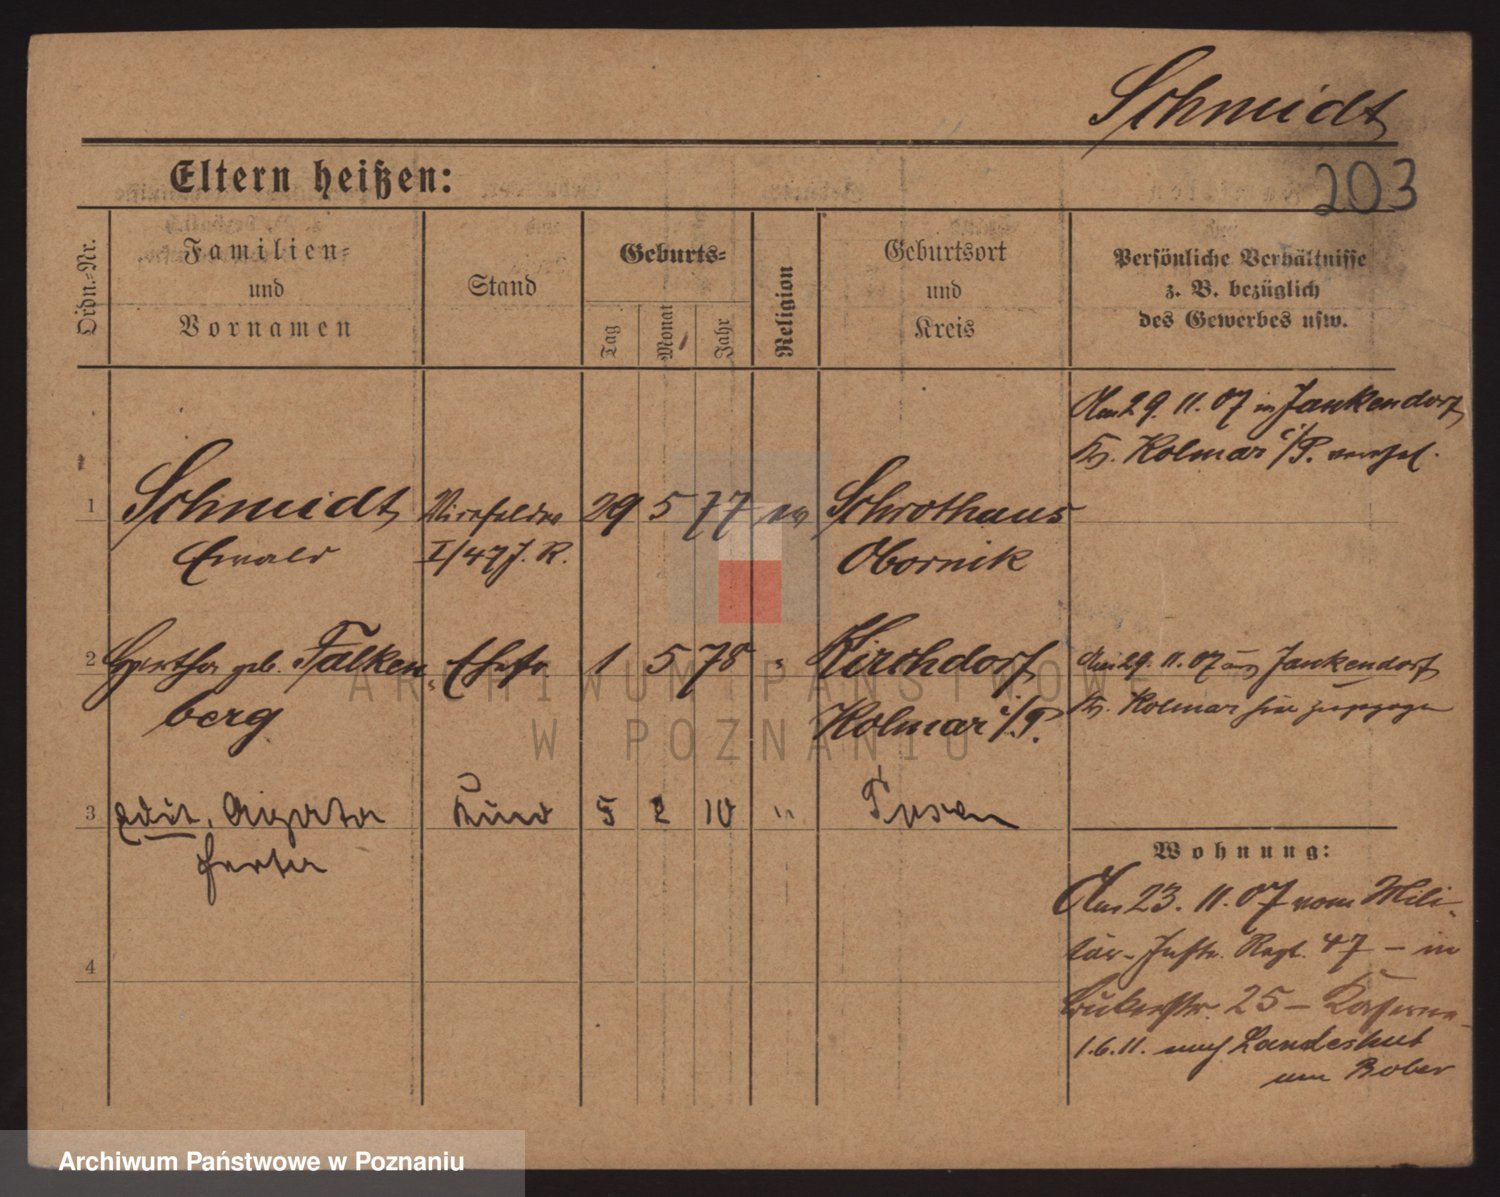 Schmidt
203
Eltern heißen:
Ordn.-Nr.
Familien-
und
Vornamen
Stand
Geburts-
Tag
Monat
Jahr
Religion
Geburtsort
und
Kreis
Persönliche Verhältnisse
z. B. bezüglich
des Gewerbes usw.
Am 29. 11. 07 in Jankendorf
Kr. Kolmar i/P. verehel.
1 Schmidt Vizefeldw 29 5 77 ev Schrothaus
Ewald I/47 J. R. Obornik
2 Hertha geb. Falken Ehefr. 1 5 78 " Kirchdorf
berg Kolmar i/P.
Am 29. 11. 07 aus Jankendorf
Kr. Kolmar hier zugezogen
3 Edit, Agata Kind 5 2 10 " Posen
Herta
4
Wohnung:
Am 23. 11. 07 vom Mili-
tär-Inftr. Regt. 47 - in
25 - Kaserne
1.6.11. nach Landeshut
am Bober
ARCHIWUM PAŃSTWOWE
W POZNANIU
Archiwum Państwowe w Poznaniu